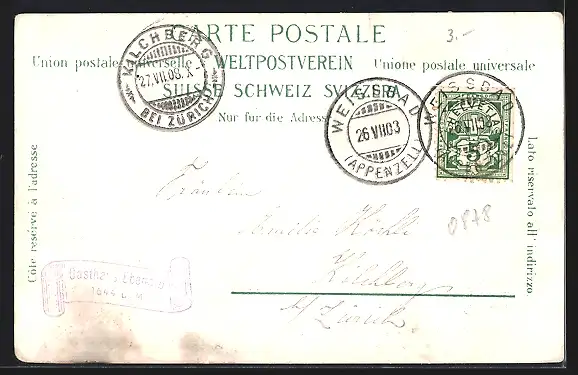 CARTE POSTALE
3.-
Union postale universelle WELTPOSTVEREIN Unione postale universale
SUISSE SCHWEIZ SVIZZERA
Nur für die Adresse
KILCHBERG
27.VII.03. X
BEI ZÜRICH
WEISSBAD
26 VII 03
(APPENZELL)
WEISSBAD
26 VII 03
HELVETIA
5
Côté réservé à l'adresse
Lato riservato all' indirizzo
Fräulein
Kilchberg
b/ Zürich
0878
1644 M